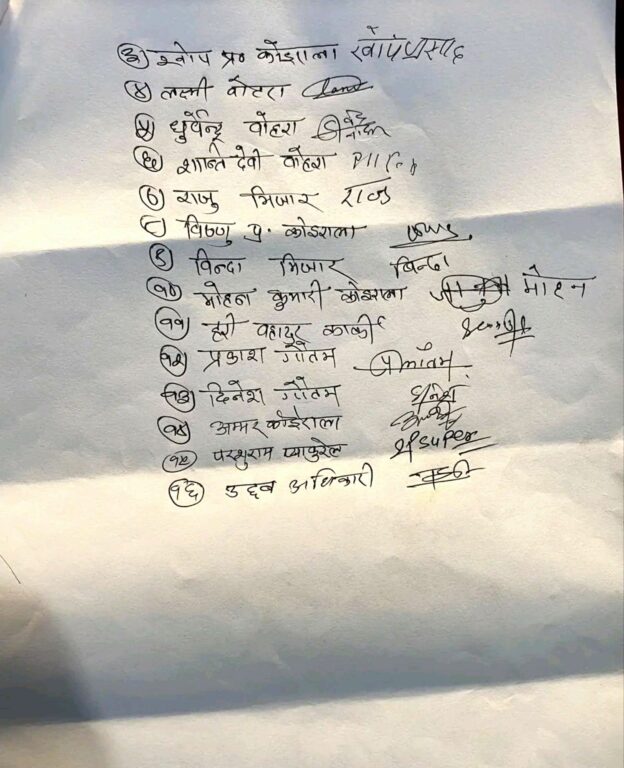 ३ श्वोप प्र० कोइराला खोपप्रसाद
४ लक्ष्मी वोहरा
५ धुर्वेन्द्र वोहरा
६ शान्ति देवी वोहरा
७ राजु मिजार राजु
८ विष्णु प्र. कोइराला
९ विन्दा मिजार विन्दा
१० मोहन कुमारी कोइराला मोहन
११ हरी वहादुर कार्की
१२ प्रकाश गौतम
१३ दिनेश गौतम
१४ अम्मर कोइराला
१५ परशुराम प्याकुरेल
१६ उद्दव अधिकारी